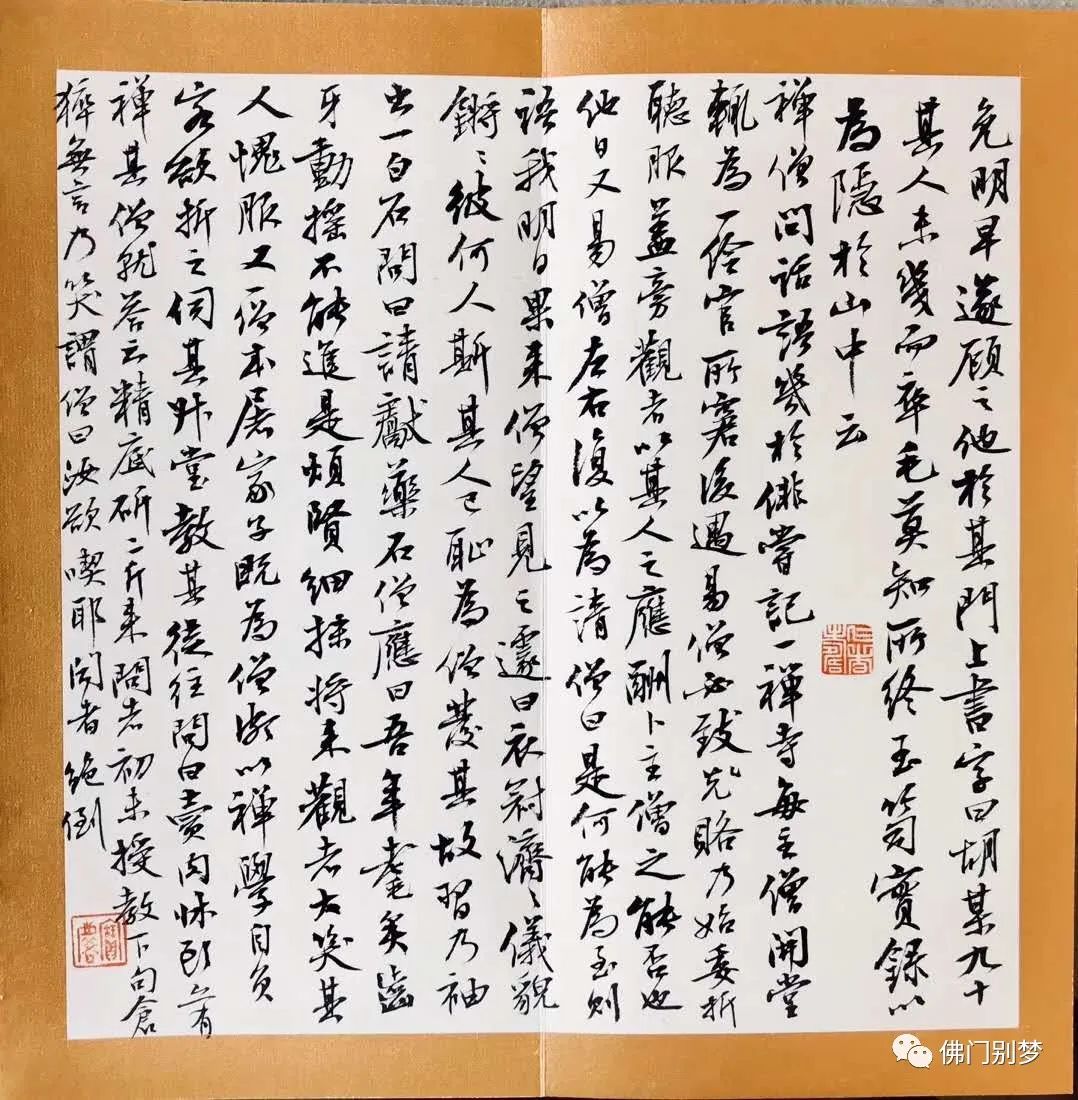 免明早遂顾之他於其門上書字曰胡某九十
其人未幾而卒毛莫知所終玉笥寶録以
為隱於山中云
禅僧問話語幾於俳嘗記一禅寺每主僧開堂
輒為一伶官所窘後遇易僧必致先賂乃始委折
聽服蓋旁觀者以其人之應酬卜主僧之能否也
他日又易僧左右復以為請僧曰是何能為至則
語我明日果来僧望見之遽曰衣冠濟〻儀貌
鏘〻彼何人斯其人已恥為僧發其故習乃袖
出一白石問曰請獻藥石僧應曰吾年耄矣齒
牙動搖不能進是煩賢細抹将来觀者大笑其
人愧服又僧本屠家子既為僧頗以禅學自負
客欲折之伺其升堂教其徒往問曰賣肉床頭上有
禅其僧就答云精底斫二斤来問者初未授教下句倉
猝無言乃笑謂僧曰汝欲喫耶闻者絶倒
佛门别梦